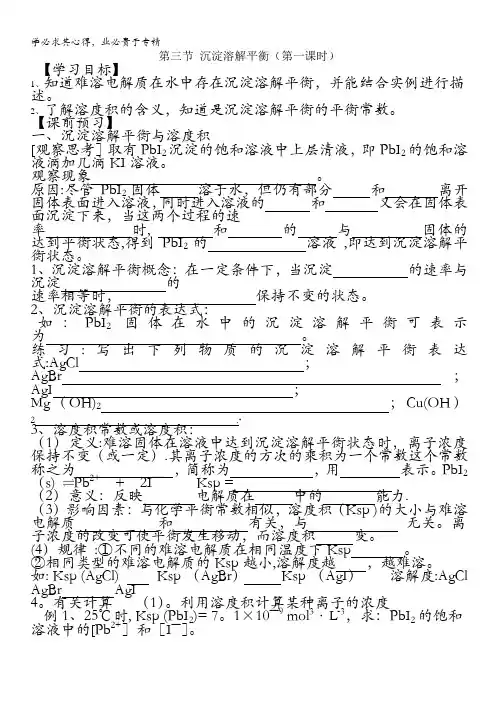 学必求其心得，业必贵于专精
第三节 沉淀溶解平衡（第一课时）
【学习目标】
1、知道难溶电解质在水中存在沉淀溶解平衡，并能结合实例进行描
述。
2、了解溶度积的含义，知道是沉淀溶解平衡的平衡常数。
【课前预习】
一、沉淀溶解平衡与溶度积
[观察思考]取有PbI₂沉淀的饱和溶液中上层清液，即PbI₂的饱和溶
液滴加几滴KI溶液。
观察现象 。
原因:尽管 PbI₂固体 溶于水，但仍有部分 和 离开
固体表面进入溶液,同时进入溶液的 和 又会在固体表
面沉淀下来，当这两个过程的速
率 时， 和 的 与 固体的
达到平衡状态,得到 PbI₂的 溶液 ,即达到沉淀溶解平
衡状态。
1、沉淀溶解平衡概念：在一定条件下，当沉淀 的速率与
沉淀 的
速率相等时， 保持不变的状态。
2、沉淀溶解平衡的表达式：
如：PbI₂固体在水中的沉淀溶解平衡可表示
为 。
练习：写出下列物质的沉淀溶解平衡表达
式:AgCl ；
AgBr ；
AgI ；
Mg（OH)₂ ；Cu(OH）
₂ .
3、溶度积常数或溶度积：
（1）定义:难溶固体在溶液中达到沉淀溶解平衡状态时，离子浓度
保持不变（或一定）.其离子浓度的方次的乘积为一个常数这个常数
称之为 ，简称为 ，用 表示。PbI₂
（s) ⇌Pb²⁺ + 2I⁻ Ksp =
（2）意义：反映 电解质在 中的 能力.
（3）影响因素：与化学平衡常数相似，溶度积（Ksp )的大小与难溶
电解质 和 有关，与 无关。离
子浓度的改变可使平衡发生移动，而溶度积 变。
(4）规律 :①不同的难溶电解质在相同温度下Ksp 。
②相同类型的难溶电解质的Ksp越小,溶解度越 ，越难溶。
如: Ksp (AgCl) Ksp （AgBr） Ksp （AgI） 溶解度:AgCl
AgBr AgI
4。有关计算 （1）。利用溶度积计算某种离子的浓度
例1、25℃时, Ksp (PbI₂)= 7。1×10⁻⁹ mol³·L⁻³，求：PbI₂的饱和
溶液中的[Pb²⁺］和［I⁻］。